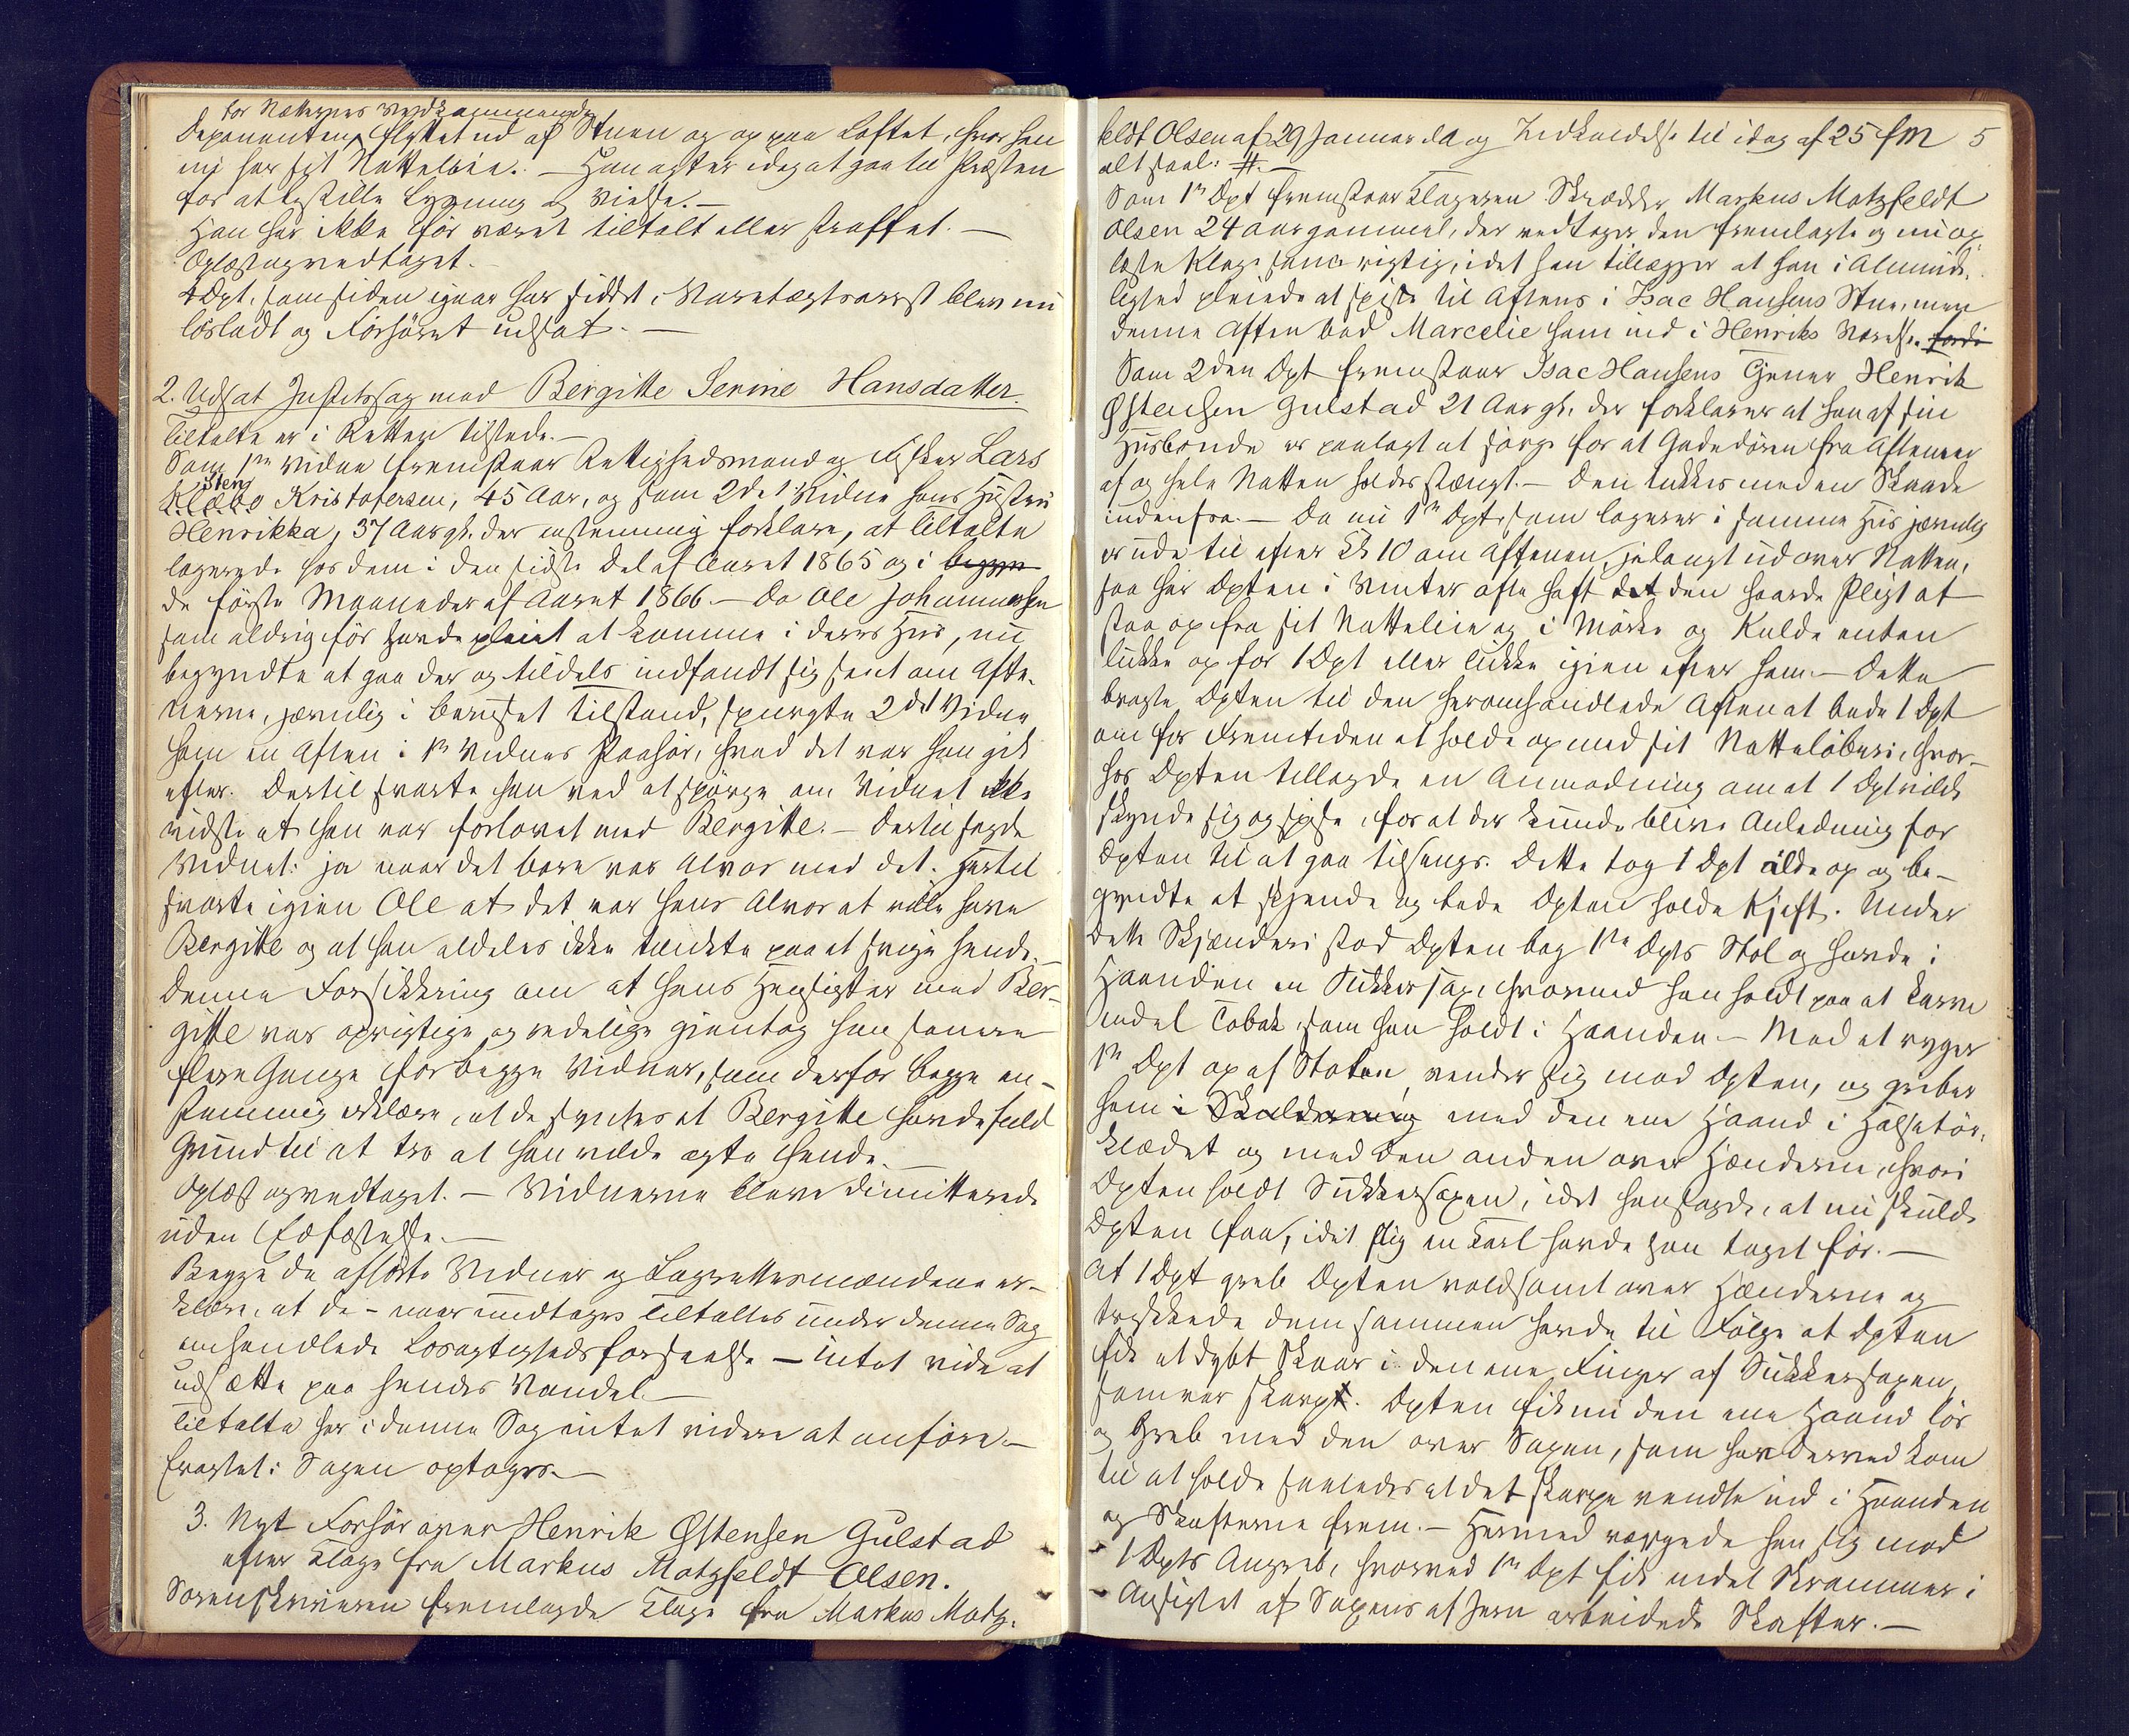 for Netternes Vedkommende
Deponenten flyttet ud af Stuen og op paa Loftet, hvor han
nu har sit Natteleie. – Han agter idag at gaa til Præsten
for at bestille Lysning og Vielse. –
Han har ikke før været tiltalt eller straffet. –
Oplæst og vedtaget.
4 Dpt. som siden igaar har siddet i Varetægtsarrest blev nu
løsladt og Forhøret udsat. –
2. Udsat Justitssag mod Bergitte Serine Hansdatter.
Tiltalte er i Retten tilstede. –
Som 1ste Vidne fremstaar Rettighedsmand og Fisker Lars
Sten
Klæbo Kristofersen, 45 Aar, og som 2det Vidne hans Hustru
Henrikka, 37 Aar gl. der enstemmig forklare, at Tiltalte
logerede hos dem i den sidste Del af Aaret 1865 og i begyn
de første Maaneder af Aaret 1866. – Da Ole Johannessen
som aldrig før havde pleiet at komme i deres Hus, nu
begyndte at gaa der og tildels indfandt sig sent om Afte-
nerne, jævnlig i beruset Tilstand, spurgte 2det Vidne
ham en Aften i 1ste Vidnes Paahør, hvad det var han gik
efter. Dertil svarte han ved at spørge om Vidnet ikke
vidste at han var forlovet med Bergitte. – Dertil sagde
Vidnet: ja naar det bare var Alvor med det. Hertil
svarte igjen Ole at det var hans Alvor at ville have
Bergitte og at han aldeles ikke tænkte paa at svige hende. –
Denne Forsikkring om at hans Hensigter med Ber-
gitte var oprigtige og redelige gjentog han senere
flere Gange for begge Vidner, som derfor begge en-
stemmig erklære, at de syntes at Bergitte havde fuld
Grund til at tro at han vilde ægte hende. –
Oplæst og vedtaget. – Vidnerne bleve dimitterede
uden Edfæstelse. –
Begge de afhørte Vidner og Lagrettesmændene er-
klære, at de – naar undtages Tiltaltes under denne Sag
omhandlede Løsagtighedsforseelse – intet vide at
udsætte paa hendes Vandel. –
Tiltalte har i denne Sag intet videre at anføre. –
Eragtet: Sagen optages. –
3. Nyt Forhør over Henrik Østensen Gulstad
efter Klage fra Markus Motzfeldt Olsen.
Sorenskriveren fremlagde Klage fra Markus Motz-
feldt Olsen af 29 Januar d.A. og Indkaldelse til idag af 25 f M 5
alt saal: #. –
Som 1ste Dpt fremstaar Klageren Skrædder Markus Motzfeldt
Olsen 24 Aar gammel, der vedtager den fremlagte og nu op-
læste Klage som rigtig, idet han tillægger at han i Alminde-
lighed pleiede at spise til Aftens i Isac Hansens Stue, men
denne Aften bad Marcelie ham ind i Henriks Værelse. fordi
Som 2den Dpt fremstaar Isac Hansens Tjener Henrik
Østensen Gulstad 21 Aar gl. der forklarer at han af sin
Husbonde er paalagt at sørge for at Gadedøren fra Aftenen
af og hele Natten holdes stængt. – Den lukkes med en Skaade
indenfra. – Da nu 1ste Dpt, som logerer i samme Hus jævnlig
er ude til efter Kl 10 om Aftenen, ja langt ud over Natten,
saa har Dpten i Vinter ofte havt det den haarde Pligt at
staa op fra sit Natteleie og i Mørke og Kulde enten
lukke op for 1 Dpt eller lukke igjen efter ham. – Dette
bragte Dpten til den heromhandlede Aften at bede 1 Dpt
om for Fremtiden at holde op med sit Natteløberi, hvor-
hos Dpten tillagde en Anmodning om at 1 Dpt vilde
skynde sig og spise, for at der kunde blive Anledning for
Dpten til at gaa tilsengs. Dette tog 1 Dpt ilde op og be-
gyndte at skjende og bede Dpten holde Kjeft. Under
dette Skjænderi stod Dpten bag 1ste Dpts Stol og havde i
Haanden en Sukkersax, hvormed han holdt paa at karve
endel Tobak, som han holdt i Haanden. – Med et ryger
1ste Dpt op af Stolen vender sig mod Dpten, og griber
ham i med den ene Haand i Halstør-
klædet og med den anden over Hænderne, hvori
Dpten holdt Sukkersaxen, idet han sagde, at nu skulde
Dpten faa, idet slig en Karl havde han taget før. –
At 1 Dpt greb Dpten voldsomt over Hænderne og
trykkede dem sammen havde til Følge at Dpten
fik et dybt Skaar i den ene Finger af Sukkersaxen,
som var skarpt. Dpten fik nu den ene Haand løs
og Greb med den over Saxen, som han derved kom
til at holde saaledes at det skarpe vendte ind i Haanden
og Skafterne frem. – Hermed værgede han sig mod
1 Dpts Angreb, hvorved 1ste Dpt fik endel Skrammer i
Ansigtet af Saxens af Jern arbeidede Skafter. –